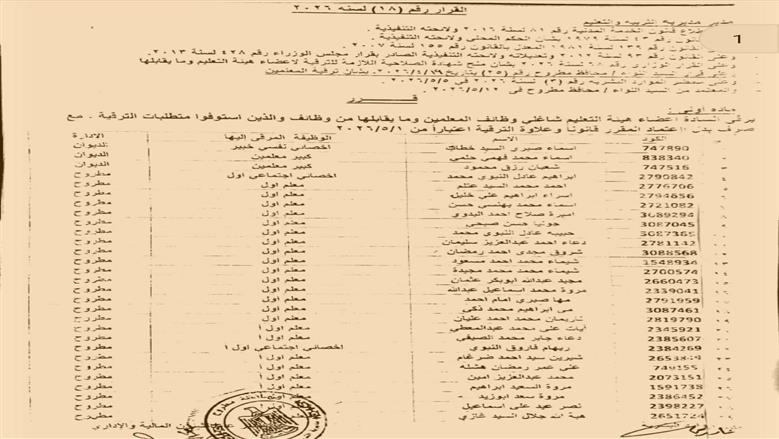 القرار رقم (١٨) لسنه ٢٠٢٦
مدير مديرية التربية والتعليم
قانون الخدمة المدنية رقم ٨١ لسنه ٢٠١٦ ولائحته التنفيذية
بشأن الحكم المحلى ولائحته التنفيذية
رقم ١٣٩ لسنه ١٩٨١ المعدل بالقانون رقم ١٥٥ لسنه ٢٠٠٧
وعلى القانون رقم ٩٣ لسنه ٢٠١٢ وتعديلاته ولائحته التنفيذية الصادر بقرار مجلس الوزراء رقم ٤٢٨ لسنه ٢٠١٣
وعلى القرار الوزارى رقم لسنه ٢٠ بشأن منح شهادة الصلاحية اللازمة للترقية لاعضاء هيئة التعليم وما يقابلها
قرار السيد اللواء / محافظ مطروح رقم (٢٥) بتاريخ بشأن ترقية المعلمين
الموارد البشريه رقم (٣) لسنه ٢٠٢٦ فى ٢٠٢٦/٥/٥
والمعتمد من السيد اللواء / محافظ مطروح فى ٢٠٢٦/٥/١٢
قـــــرر
ماده اولى :
يرقى السادة اعضاء هيئة التعليم شاغلى وظائف المعلمين وما يقابلها من وظائف والذين استوفوا متطلبات الترقية . مع
صرف بدل الاعتماد المقرر قانونا وعلاوة الترقية اعتبارا من ٢٠٢٦/٥/١
الكود الاسم الوظيفة المرقى اليها الادارة
747890 اسماء صبرى السيد خطاب اخصائى نفسي خبير الديوان
838340 اسماء محمد فهمى حلمى كبير معلمين الديوان
747515 شعبان رزق محمود كبير معلمين الديوان
2790842 ابراهيم عادل النبوى محمد اخصائى اجتماعى اول مطروح
2776706 احمد محمد السيد معلم اول مطروح
2794656 اسراء ابراهيم على معلم اول مطروح
2721082 اسماء محمد بهنسى حسن معلم اول مطروح
3089294 اميرة صلاح احمد البدوى معلم اول مطروح
3087045 حسن صبحى معلم اول مطروح
3087365 حبيبه عادل النبوى محمد معلم اول مطروح
2781142 دعاء احمد عبدالعزيز سليمان معلم اول مطروح
3088568 شروق مجدى احمد رمضان معلم اول مطروح
1548934 شيماء محمد احمد مسعود معلم اول مطروح
2700574 شيماء محمد محمد مجيدة معلم اول مطروح
2660473 مجيد عبدالله ابوبكر عثمان معلم اول مطروح
2339041 مروة محمد اسماعيل عبدالله معلم اول مطروح
2791959 مها صبرى امام احمد معلم اول مطروح
3087461 مى ابراهيم محمد ذكى معلم اول مطروح
2819790 ناريمان محمد احمد معلم اول مطروح
2345921 آيات على محمد عبدالمعطى معلم اول أ مطروح
2385607 دعاء جابر محمد الصيفى معلم اول أ مطروح
2384269 ريهام فاروق النبوى اخصائى اجتماعى اول أ مطروح
شيرين سيد احمد ضرغام معلم اول أ مطروح
على عمر رمضان معلم اول أ مطروح
2073151 محمد عبدالعزيز امين معلم اول أ مطروح
1591738 مروة السعيد ابراهيم معلم اول أ مطروح
2386452 مروة سعد ابوزيد معلم اول أ مطروح
2398227 نصر عيد على اسماعيل معلم اول أ مطروح
2651724 هبة الله جلال السيد غازي مطروح
المالية والإدارى
1